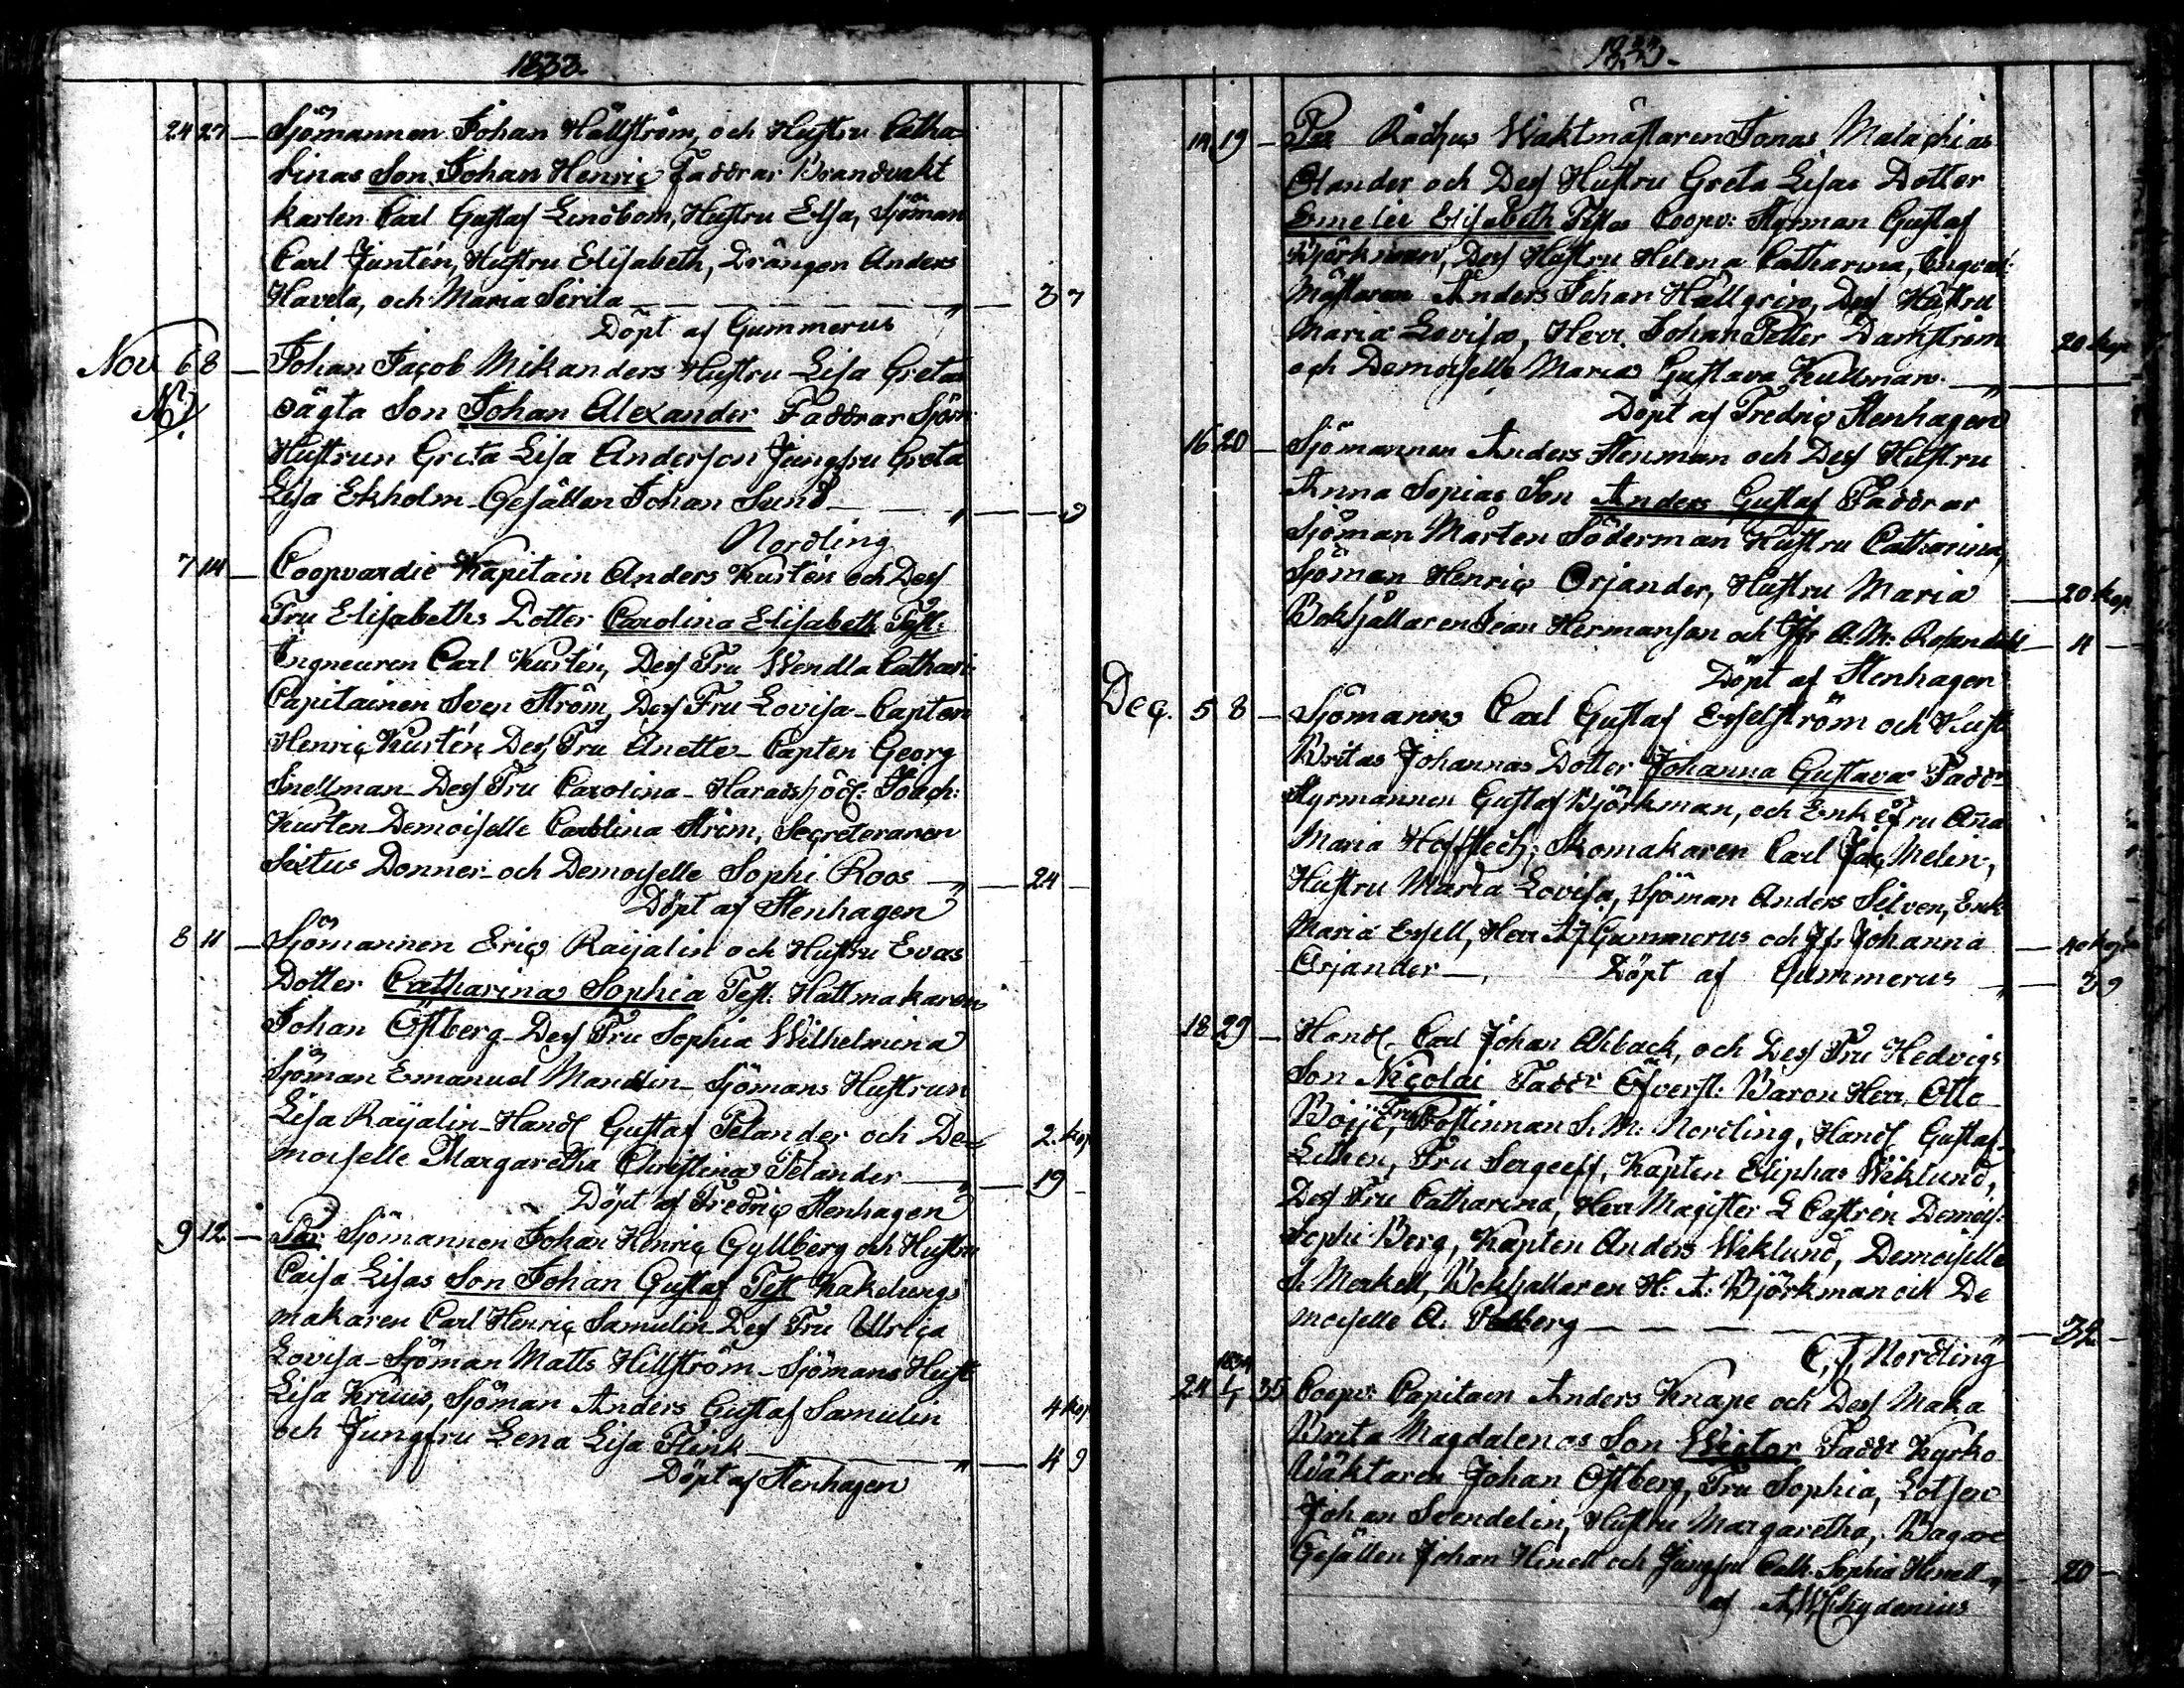 1833.
24 27 — Sjömannen Johan Hällström, och Hustru Catha-
rinas Son Johan Henric Faddrar Brandvakt
karlen Carl Gustaf Lindbom, Hustru Elsa, Sjöman
Carl Juntén, Hustru Elisabeth, Drängen Anders
Havela, och Maria Sirila — — — 37
Döpt af Gummerus
Nov 6 8 — Johan Jacob Mikanders Hustru Lisa Gretas
oägta Son Johan Alexander Faddrar Sjöm
Hustrun Greta Lisa Anderson Jungfru Greta
Lisa Ekholm Gesällen Johan Sund — — — 9
Nordling
7 14 — Coopvardie Kapitain Anders Kurtén och Dess
Fru Elisabeths Dotter Carolina Elisabeth Test:
Ingneuren Carl Kurtén, Dess Fru Wendla Cathari:
Capitainen Sven Ström, Dess Fru Lovisa - Capten
Henric Kurtén, Dess Fru Anette - Capten Georg
Snellman - Dess Fru Carolina - Haradshöd: Joach:
Kurten - Demoiselle Carolina Ström, Secreteraren
Sixtus Donner - och Demoiselle Sophi Roos — — 24 —
Döpt af Stenhagen
8 11 — Sjömannen Eric Raijalin och Hustru Evas
Dotter Catharina Sophia Test: Hattmakaren
Johan Östberg - Dess Fru Sophia Wilhelmina
Sjöman Emanuel Mandlin - Sjömans Hustrun
Lisa Raijalin - Handl Gustaf Pelander och De- 2. kop
moiselle Margaretha Christina Pelander — — 19 —
Döpt af Fredric Stenhagen
9 12 — Par: Sjömannen Johan Henric Gyllberg och Hustru
Caisa Lisas Son Johan Gustaf Test Kakelungs
makaren Carl Henric Samulin Dess Fru Ulrica
Lovisa - Sjöman Matts Hillström - Sjömans Hust
Lisa Kruus, Sjöman Anders Gustaf Samulin 4 kop
och Jungfru Lena Lisa Flink — — 49
Döpt af Stenhagen
1833.
14 19 — Rådhus Waktmästaren Jonas Malachias
Olander och Dess Hustru Greta Lisas Dotter
Emelie Elisabeth Test Coopv: Styrman Gustaf
Björkman, Dess Hustru Helena Catharina,
Mästaren Anders Johan Hällgrin, Dess Hustru
Maria Lovisa, Herr Johan Petter Damström 20 kop
och Demoiselle Maria Gustava Kullman —
Döpt af Fredric Stenhagen
16 20 — Sjömannen Anders Stenman och Dess Hustru
Anna Sopias Son Anders Gustaf Faddrar
Sjöman Mårten Söderman Hustru Catharina,
Sjöman Henric Orjander, Hustru Maria — 20 kop
Bokhållaren Jean Hermanson och Jfr A. M. Rosendahl — 11 —
Döpt af Stenhagen
Dec. 5 8 — Sjömann Carl Gustaf Esselström och Hust
Britas Johannas Dotter Johanna Gustava Fadd
Styrmannen Gustaf Björkman, och Enkefru Ana
Maria Skomakaren Carl Jac Melen,
Hustru Maria Lovisa, Sjöman Anders Silven, Enk
Maria Essell, Herr A J Gummerus och Jfr Johanna — 40 kop
Orjander —, Döpt af Gummerus — 39
18 29 — Handl. Carl Johan Ahlback, och Dess Fru Hedvigs
Son Nicolai Faddr Öfverst: Baron Herr Otto
Boije, Fru Prostinnan S. M. Nordling, Handl Gustaf
Lithen, Fru Sergeeff, Kapten Eliphas Wiklund,
Dess Fru Catharina, Herr Magister L Castrén Demois:
Sophi Berg, Kapten Anders Wiklund, Demoiselle
S. Morkell, Bokhallaren H. A. Björkman och De
moiselle A. — — — 32 —
C. J. Nordling
1834
24 35 Coopv: Capitain Anders Knape och Dess Maka
Brita Magdalenas Son Wictor Faddr Kyrko
Wäktaren Johan Östberg, Fru Sophia, Lotsen
Johan Svendelin, Hustru Margaretha, Bagare
Gesällen Johan Hinell och Jungfru Cath. Sophia Hinell — 20 —
af A. W. Chydenius